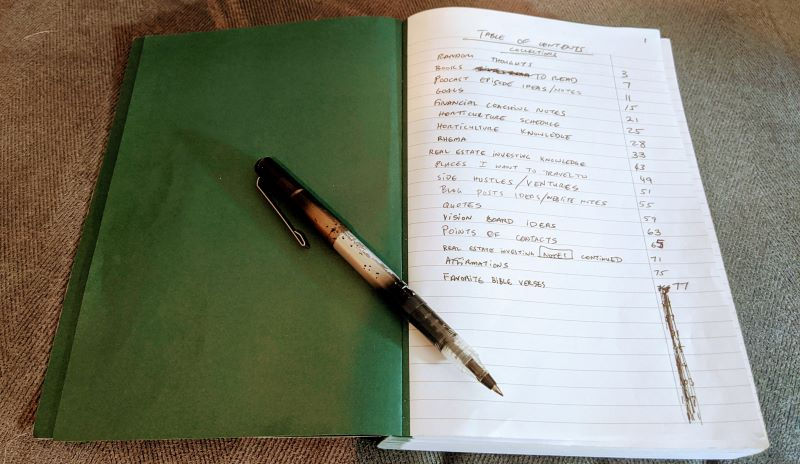 TABLE OF CONTENTS 1
COLLECTIONS
RANDOM THOUGHTS 3
BOOKS TO READ 7
PODCAST EPISODE IDEAS/NOTES 11
GOALS 15
FINANCIAL COACHING NOTES 21
HORTICULTURE SCHEDULE 25
HORTICULTURE KNOWLEDGE 28
RHEMA 33
REAL ESTATE INVESTING KNOWLEDGE 43
PLACES I WANT TO TRAVEL TO 49
SIDE HUSTLES/VENTURES 51
BLOG POSTS IDEAS/WEBSITE NOTES 55
QUOTES 59
VISION BOARD IDEAS 63
POINTS OF CONTACTS 65
REAL ESTATE INVESTING NOTE! CONTINUED 71
AFFIRMATIONS 75
FAVORITE BIBLE VERSES 77